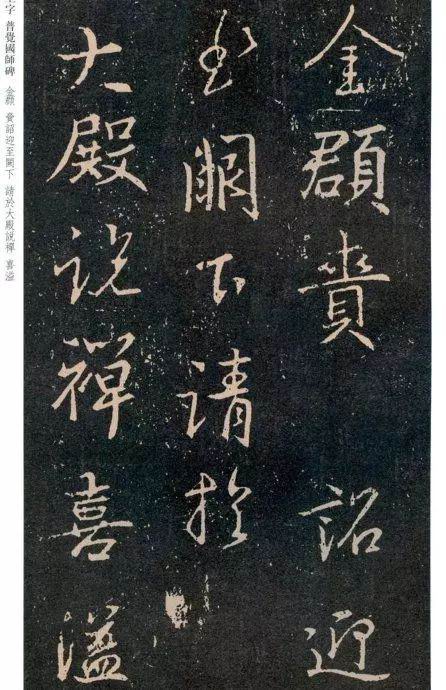 金頵賫詔迎
至闕下請於
大殿說禪喜溢
字 普覺國師碑 金頵 賫詔迎至闕下 請於大殿說禪 喜溢